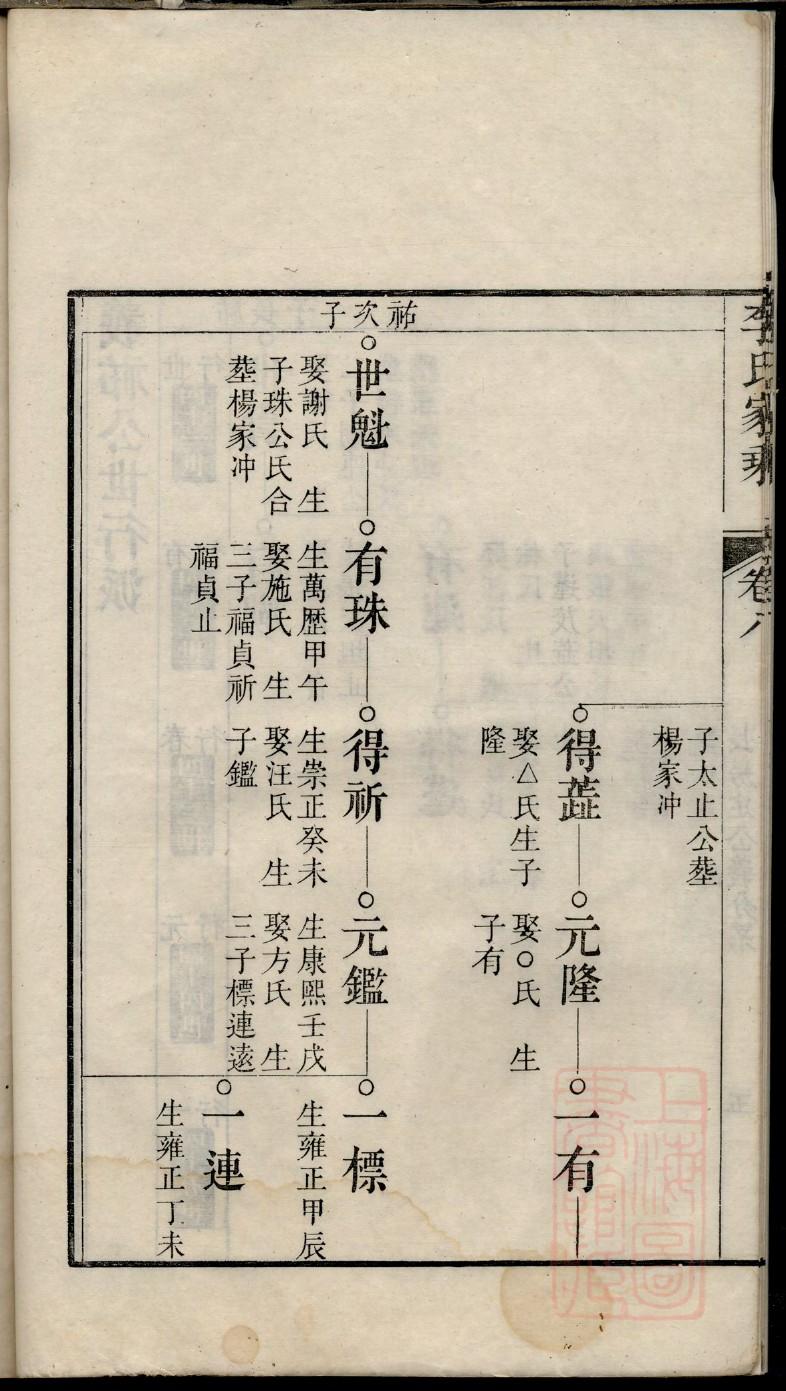 李氏家乘
卷六
子太止公墓
楊家冲
得蕋
娶△氏生子
隆
元隆
娶○氏 生
子有
一有
祐次子
世魁
娶謝氏 生
子珠公氏合
墓楊家冲
有珠
生萬歷甲午
娶施氏 生
三子福貞祈
福貞止
得祈
生崇正癸未
娶汪氏 生
子鑑
元鑑
生康熙壬戌
娶方氏 生
三子標連遠
一標
生雍正甲辰
一連
生雍正丁未
上海圖